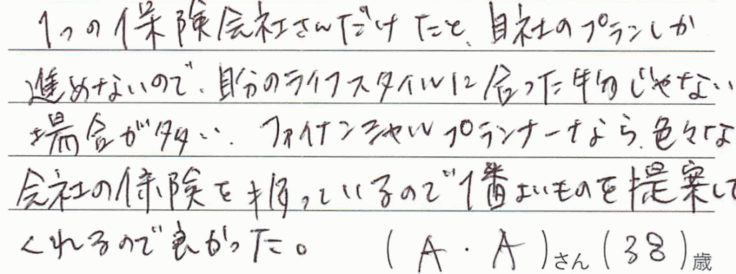 1つの保険会社さんだけだと、自社のプランしか
進めないので、自分のライフスタイルに合った物じゃない
場合が多い。ファイナンシャルプランナーなら、色々な
会社の保険を扱っているので1番よいものを提案して
くれるので良かった。 (A・A)さん(38)歳